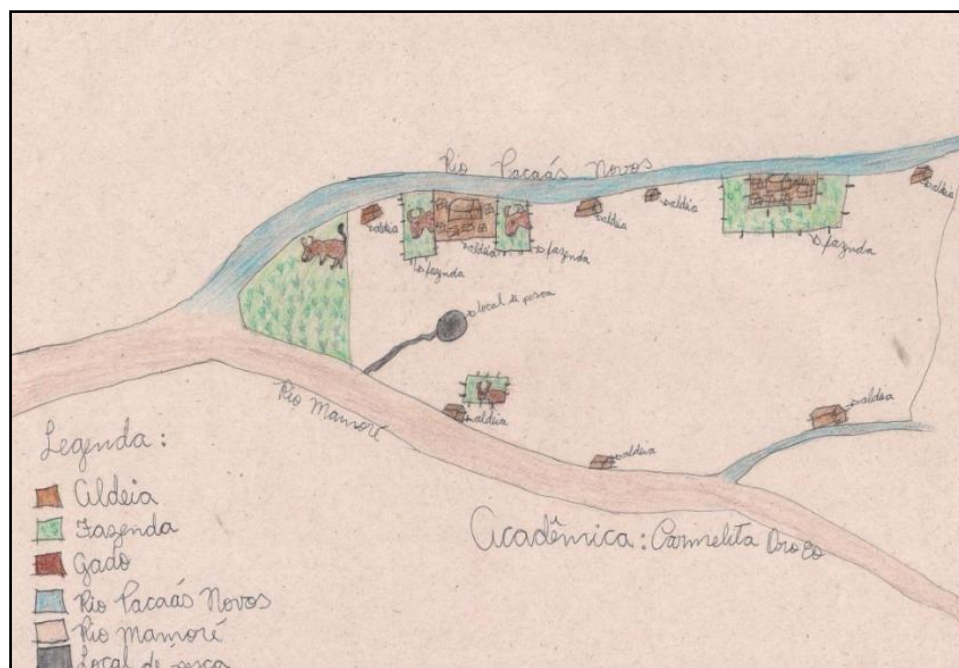 Rio Pacaás Novos
aldeia
aldeia
fazenda
aldeia
fazenda
aldeia
aldeia
fazenda
aldeia
local de pesca
Rio Mamoré
aldeia
aldeia
aldeia
Legenda:
Aldeia
Fazenda
Gado
Rio Pacaás Novos
Rio Mamoré
Local de pesca
Acadêmica: Carmelita Oro Eo